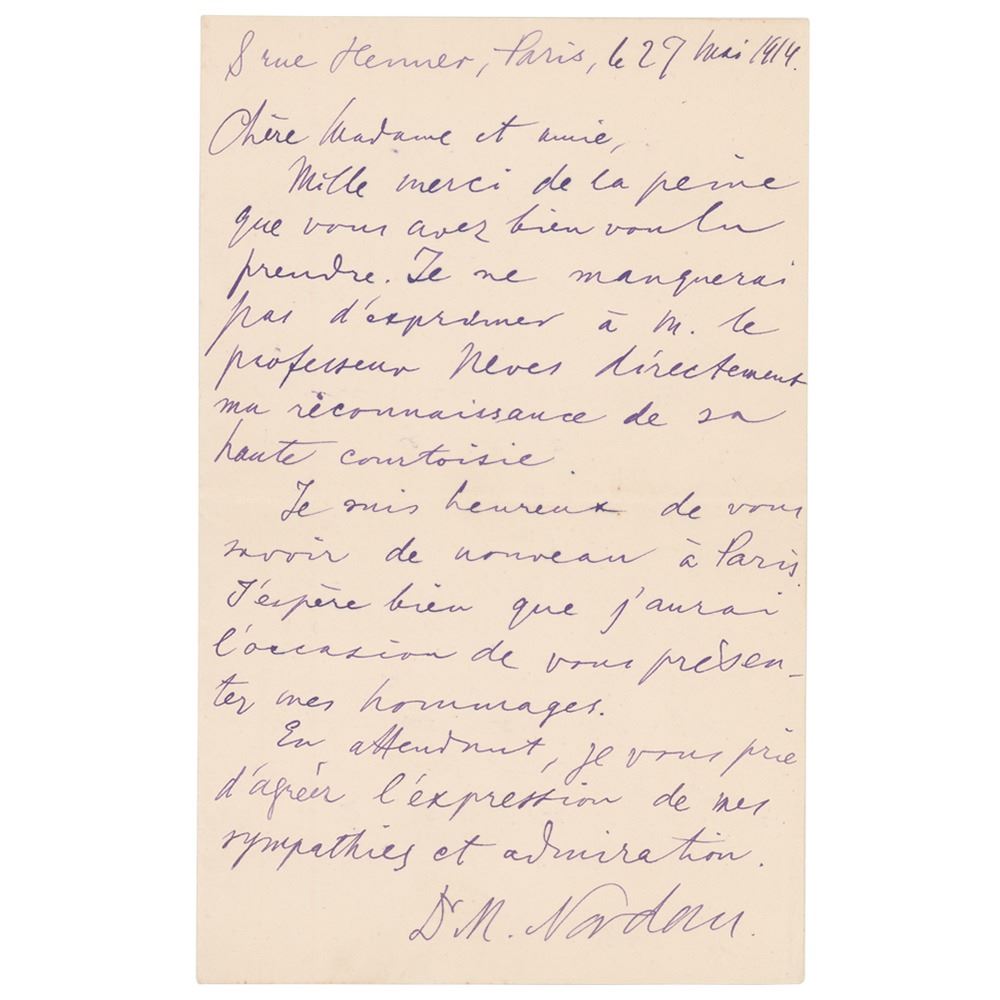 8 rue Henner, Paris, le 27 Mai 1914.
Chère Madame et amie,
Mille merci de la peine
que vous avez bien voulu
prendre. Je ne manquerai
pas d'exprimer à M. le
professeur Neves directement
ma réconnaissance de sa
haute courtoisie.
Je suis heureux de vous
savoir de nouveau à Paris.
J'espère bien que j'aurai
l'occasion de vous présen-
ter mes hommages.
En attendant, je vous prie
d'agréer l'expression de mes
sympathies et admiration.
Dr M. Nordau.